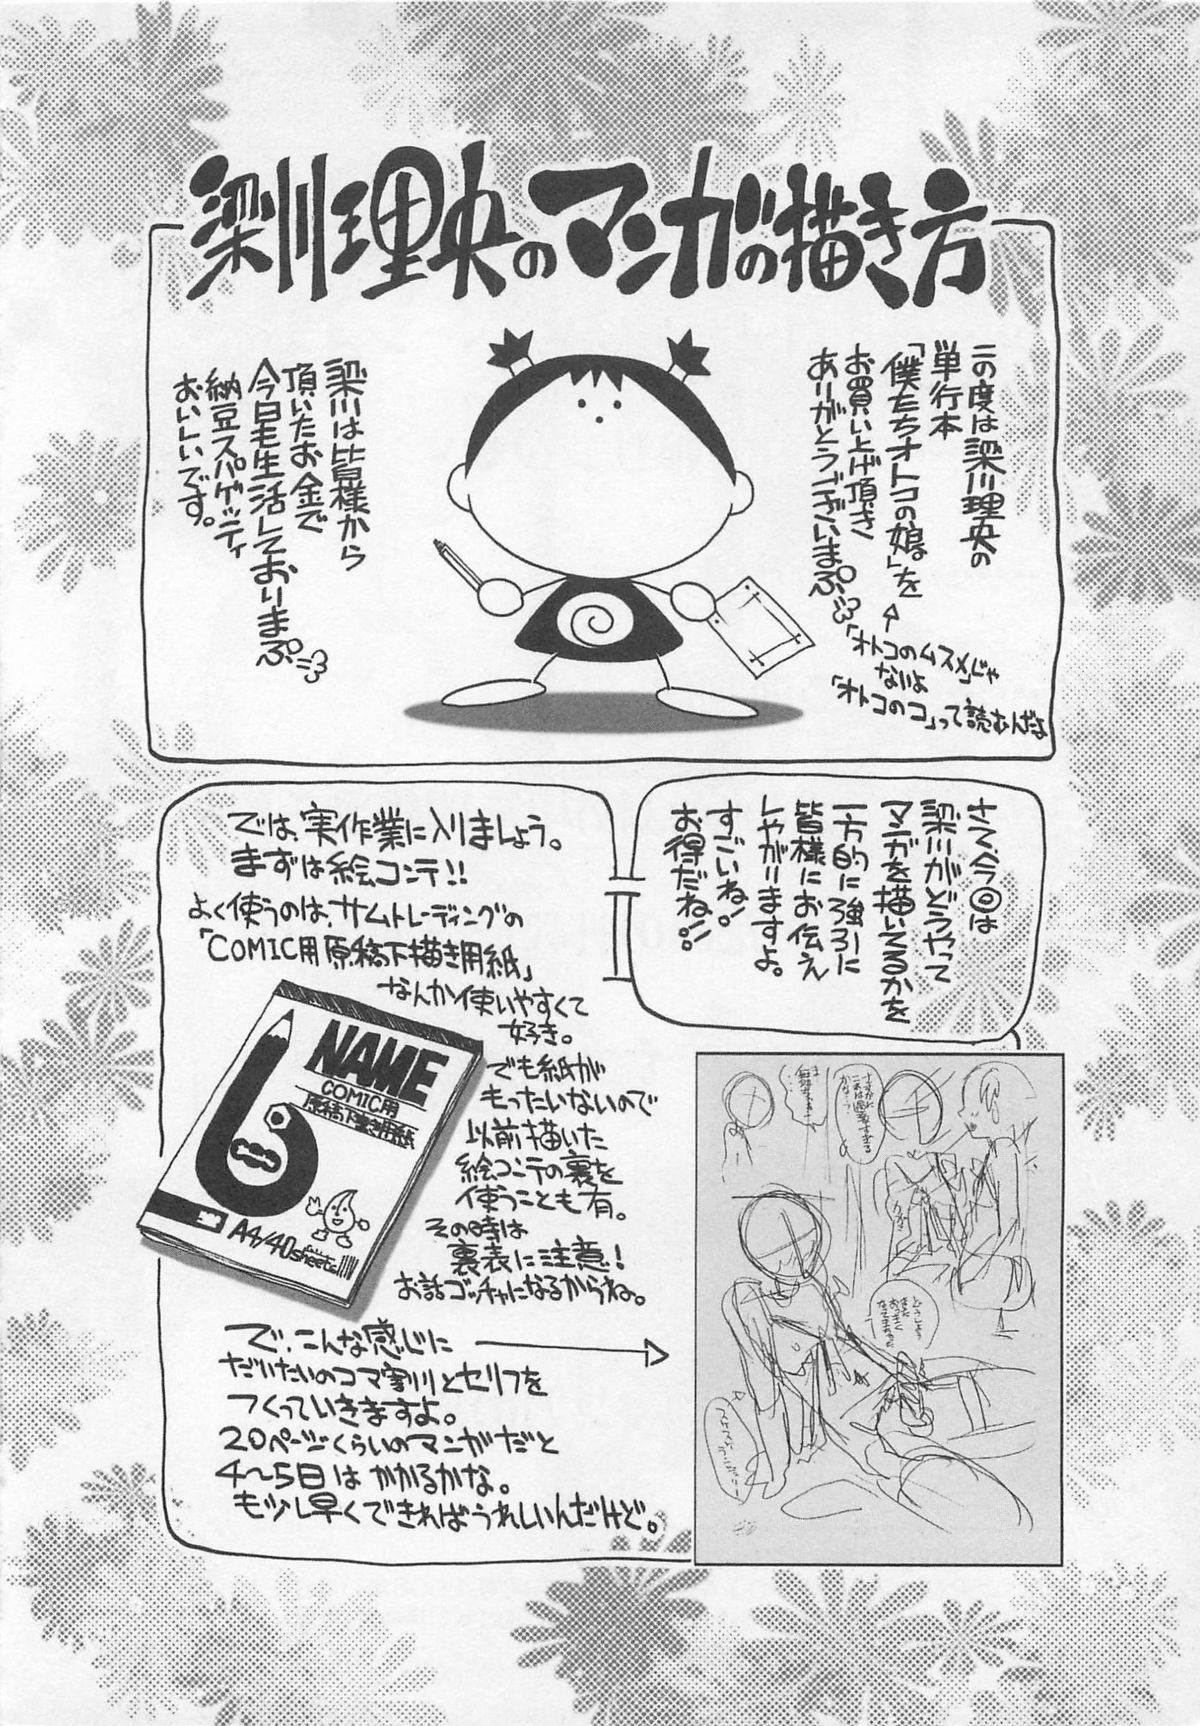 梁川理央のマンガの描き方
この度は梁川理央の
単行本
「僕たちオトコの娘」を
お買い上げ頂き
ありがとうございまぷ。
「オトコのムスメ」じゃ
ないよ
「オトコのコ」って読むんだよ
梁川は皆様から
頂いたお金で
今日も生活しておりまぷ
納豆スパゲッティ
おいしいです。
さて、今回は
梁川がどうやって
マンガを描いてるかを
一方的に強引に
皆様にお伝え
しやがりますよ。
すごいね!
お得だね!!
では、実作業に入りましょう。
まずは絵コンテ!!
よく使うのは、サムトレーディングの
「COMIC用原稿下描き用紙」
なんか使いやすくて
好き。
でも紙が
もったいないので
以前描いた
絵コンテの裏を
使うことも有。
その時は
裏表に注意!
お話ゴッチャになるからね。
NAME
COMIC用
原稿下書き用紙
A4/40sheets
で、こんな感じに
だいたいのコマ割りとセリフを
つくっていきますよ。
20ページくらいのマンガだと
4〜5日はかかるかな。
も少し早くできればうれしいんだけど。